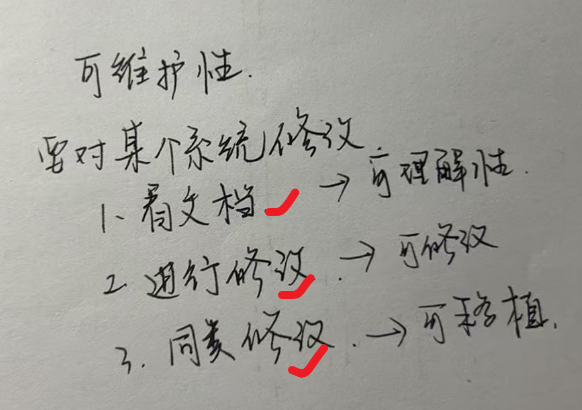 可维护性.
要对某个系统修改
1、看文档 → 可理解性.
2 进行修改. → 可修改
3. 同类修改. → 可移植.